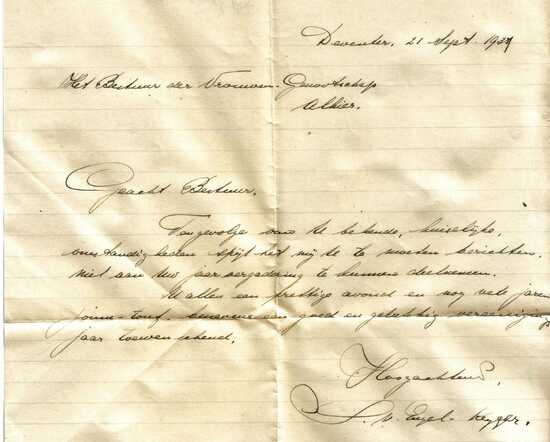 Deventer, 21 Sept. 1937
Het Bestuur der Vrouwen-Genootschap
Alhier.
Geacht Bestuur.
Tengevolge van te bekende, huiselijke,
omstandigheden spijt het mij te te moeten berichten,
niet aan Uw jaarvergadering te kunnen deelnemen.
U allen een prettige avond en nog vele jaren
een goed en gelukkig
jaar toewenschend.
Hoogachtend,